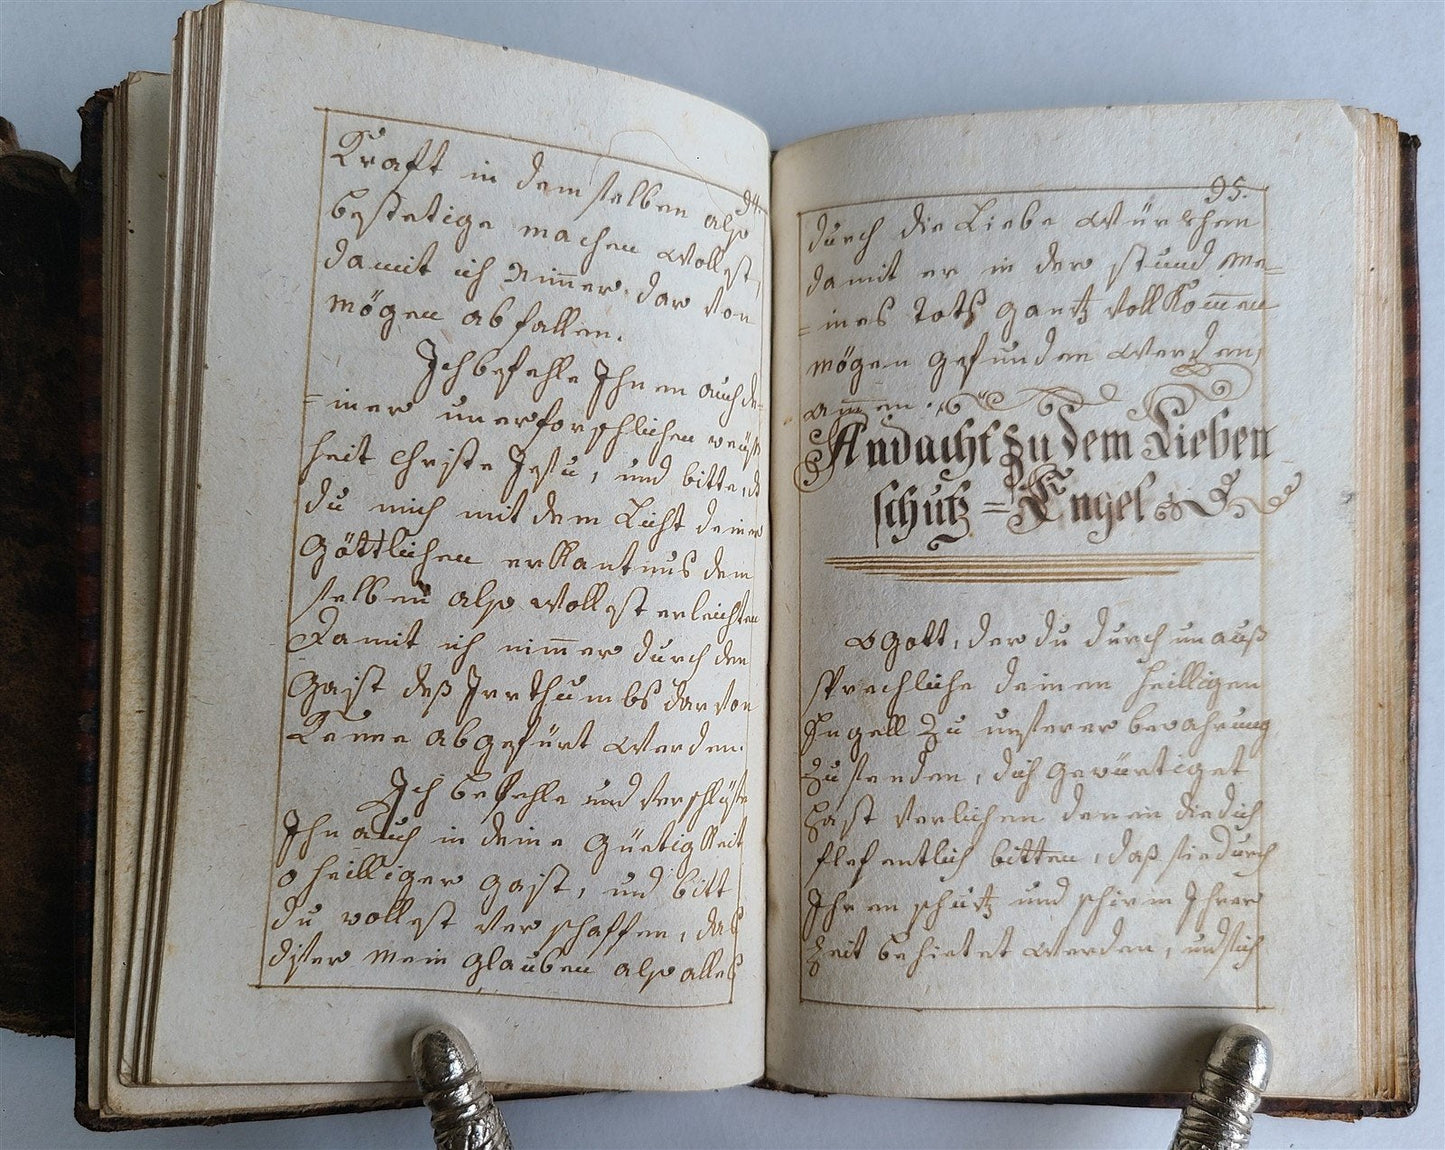 94.
Krafft in dem selben also
bestetige machen wollest,
damit ich nim̄er dar von
mögen abfallen.
Ich befehle Ihnen auch de-
-iner unerforschlichen weiß
heit Christe Jesu, und bitte, d
du mich mit dem Licht deiner
Göttlichen erkantnus dem
selben also wollest erleichten
Damit ich nim̄er durch den
Gaist deß Irrthumbs dar von
Kenne abgefürt werden.
Ich befehle und verschlüße
Ihn auch in deine Güetigkeit
o heilliger Gaist, und bitt
du wollest verschaffen, das
diser mein glauben also alles
95.
durch die Liebe würckhen
damit er in der stund me-
-ines Tots gantz vollkom̄en
mögen gefunden werden,
am̄en.
Andacht zu dem Lieben
schutz = Engel
O Gott, der du durch un auß
sprechliche deinen heilligen
Engell zu unserer bewahrung
zu senden, dich gewürtiget
hast verlichen denen die dich
flesentlich bitten, daß sie durch
Ihren schutz und schirm Ihrer
Zeit behietet werden, und sich